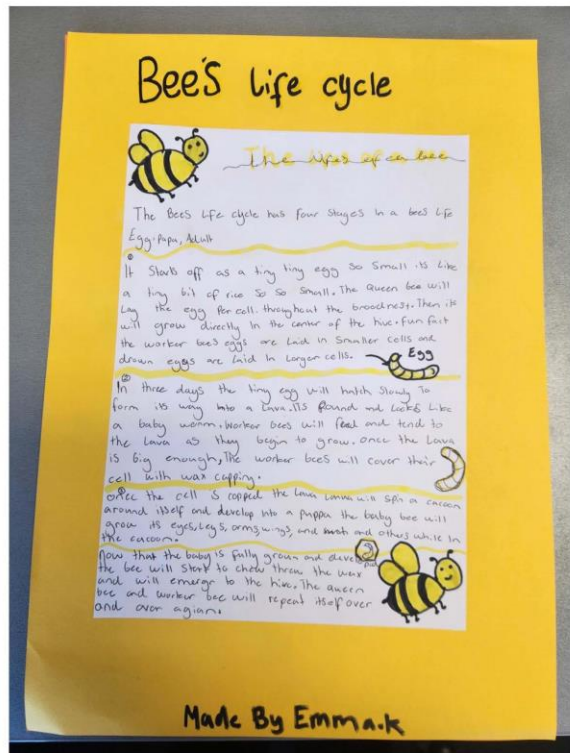 Bee's life cycle
The lifes of a bee
The Bees Life cycle has four stages in a bees life
Egg, Pupa, Adult
①
It Starts off as a tiny tiny egg so Small its Like
a tiny bit of rice So So Small. The queen bee will
Lay the egg Per cell. throughout the broodnest. Then it
will grow directly in the center of the hive. fun fact
the worker bees eggs are laid in Smaller cells and
drown eggs are laid in Larger cells.
Egg
②
In three days the tiny egg will hatch slowly To
form its way into a Lava. Its round and Looks Like
a baby worm. Worker bees will feed and tend to
the Lava as they begin to grow. once the Lava
is big enough, The worker bees will cover their
cell with wax capping.
once the cell is capped the Lava will Spin a cacoon
around itself and develop into a puppa the baby bee will
grow its eyes, Legs, arms, wings, and and others while in
the cacoon.
Now that the baby is fully grown and
the bee will start to chew threw the wax
and will emerge to the hive. The queen
bee and worker bee will repeat itself over
and over agian.
Made By Emma.k